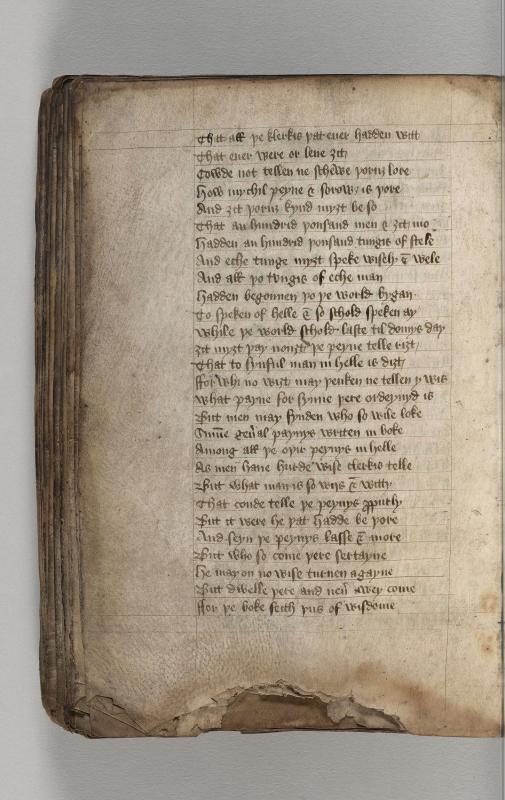 Thit all þe klerkis þat euer hadden witt
That euer were or leue ȝit
Cowde not tellen ne schewe þoruȝ lore
How mychil peyne & sorow is þore
And ȝit þoruȝ kynd myȝt be so
That an hundrid þousand men & ȝit mo
Hadden an hundrid þousand tungis of stele
And eche tunge myȝt speke wisely & wele
And all þo tungis of eche man
Hadden begonnen þo þe world bygan
To speken of helle & so schold speken ay
While þe world schold laste til domys day
Ȝit myȝt þay nouȝt þe peyne telle riȝt
That to synful man in helle is diȝt
ffor whi no wiȝt may þenken ne tellen y wis
What payne for synne þere ordeynyd is
But men may fynden who so wile loke
Sūme geñal paynys writen in boke
Among all þe oþir peynys in helle
As men haue hurde wise clerkis telle
But what man is so wijs & witty
That coude telle þe peynys ꝓpurly
But it were he þat hadde be þore
And seyn þe peynys lasse & more
But who so come þere sertayne
He may on no wise turnen agayne
But dwelle þere and neũ awey come
ffor þe boke seith þus of wisdome